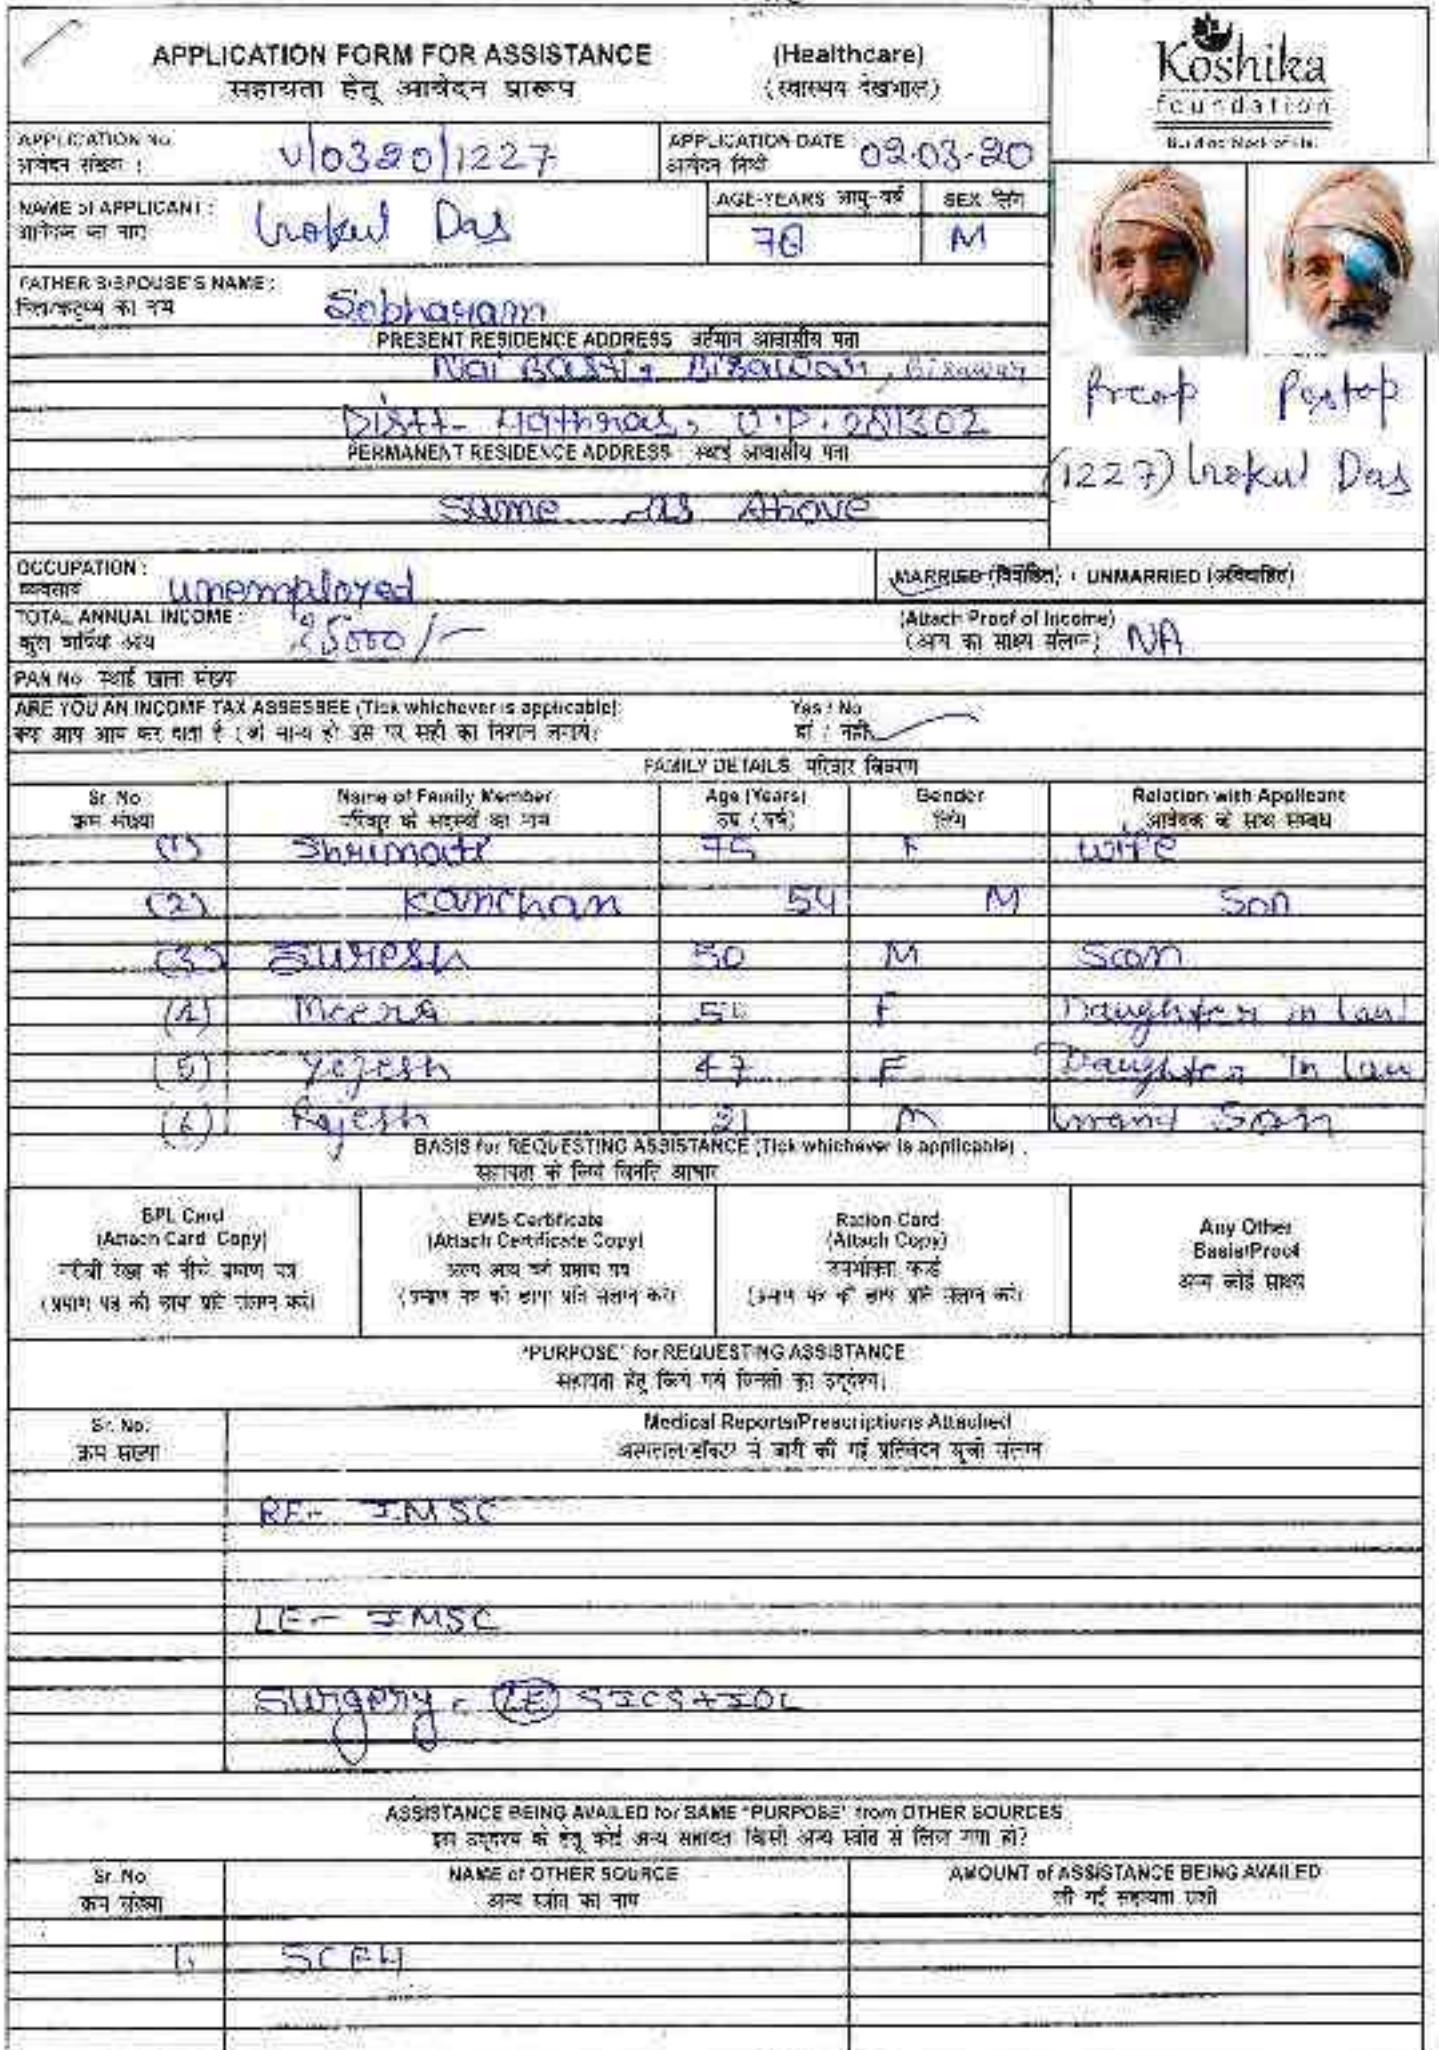 APPLICATION FORM FOR ASSISTANCE (Healthcare)
सहायता हेतू आवेदन प्रारूप (स्वास्थ्य देखभाल)
Koshika
foundation
APPLICATION No.
आवेदन संख्या : V/0320/1227
APPLICATION DATE :
आवेदन तिथी 02-03-20
NAME of APPLICANT :
आवेदक का नाम Gokul Das
AGE-YEARS आयु-वर्ष
SEX लिंग
M
FATHER'S/SPOUSE'S NAME :
पिता/कटुम्ब का नाम Sobharam
PRESENT RESIDENCE ADDRESS वर्तमान आवासीय पता
Nai Basti, Bisawar, Bisawar
Distt- Hathras, U.P. 281302
PERMANENT RESIDENCE ADDRESS स्थाई आवासीय पता
Same as Above
Preop Postop
(1227) Gokul Das
OCCUPATION :
व्यवसाय unemployed
MARRIED (विवाहित) / UNMARRIED (अविवाहित)
TOTAL ANNUAL INCOME :
कुल वार्षिक आय 25000/-
(Attach Proof of Income)
(आय का साक्ष्य संलग्न) NA
PAN No. स्थाई खाता संख्या
ARE YOU AN INCOME TAX ASSESSEE (Tick whichever is applicable):
क्या आप आय कर दाता है (जो मान्य हो उस पर सही का निशान लगाये)
Yes / No
हां / नहीं
FAMILY DETAILS परिवार विवरण
Sr. No. Name of Family Member Age (Years) Gender Relation with Applicant
क्रम संख्या परिवार के सदस्यों का नाम उम्र (वर्ष) लिंग आवेदक के साथ सम्बंध
(1) Shrimati 75 F wife
(2) Kanchan 54 M Son
(3) Suresh 50 M Soon
(4) Meera F Daughter in law
(5) Yojesh 47 F Daughter in law
(6) Rajesh 21 M Grand Son
BASIS for REQUESTING ASSISTANCE (Tick whichever is applicable)
सहायता के लिये विनति आधार
BPL Card
(Attach Card Copy)
गरीबी रेखा के नीचे प्रमाण पत्र
(प्रमाण पत्र की छाया प्रति संलग्न करें)
EWS Certificate
(Attach Certificate Copy)
अल्प आय वर्ग प्रमाण पत्र
(प्रमाण पत्र की छाया प्रति संलग्न करें)
Ration Card
(Attach Copy)
उपभोक्ता कार्ड
(प्रमाण पत्र की छाया प्रति संलग्न करें)
Any Other
Basis/Proof
अन्य कोई साक्ष्य
"PURPOSE" for REQUESTING ASSISTANCE
सहायता हेतू किये गये विनती का उद्देश्य।
Sr. No. Medical Reports/Prescriptions Attached
क्रम संख्या अस्पताल/डॉक्टर से जारी की गई प्रतिवेदन सूची संलग्न
RE- IMSC
LE- IMSC
Surgery - (LE) SICS+IOL
ASSISTANCE BEING AVAILED for SAME "PURPOSE" from OTHER SOURCES
इस उद्देश्य के हेतू कोई अन्य सहायता किसी अन्य स्त्रोत से लिया गया हो?
Sr. No. NAME of OTHER SOURCE AMOUNT of ASSISTANCE BEING AVAILED
क्रम संख्या अन्य स्त्रोत का नाम ली गई सहायता राशी
SCEH